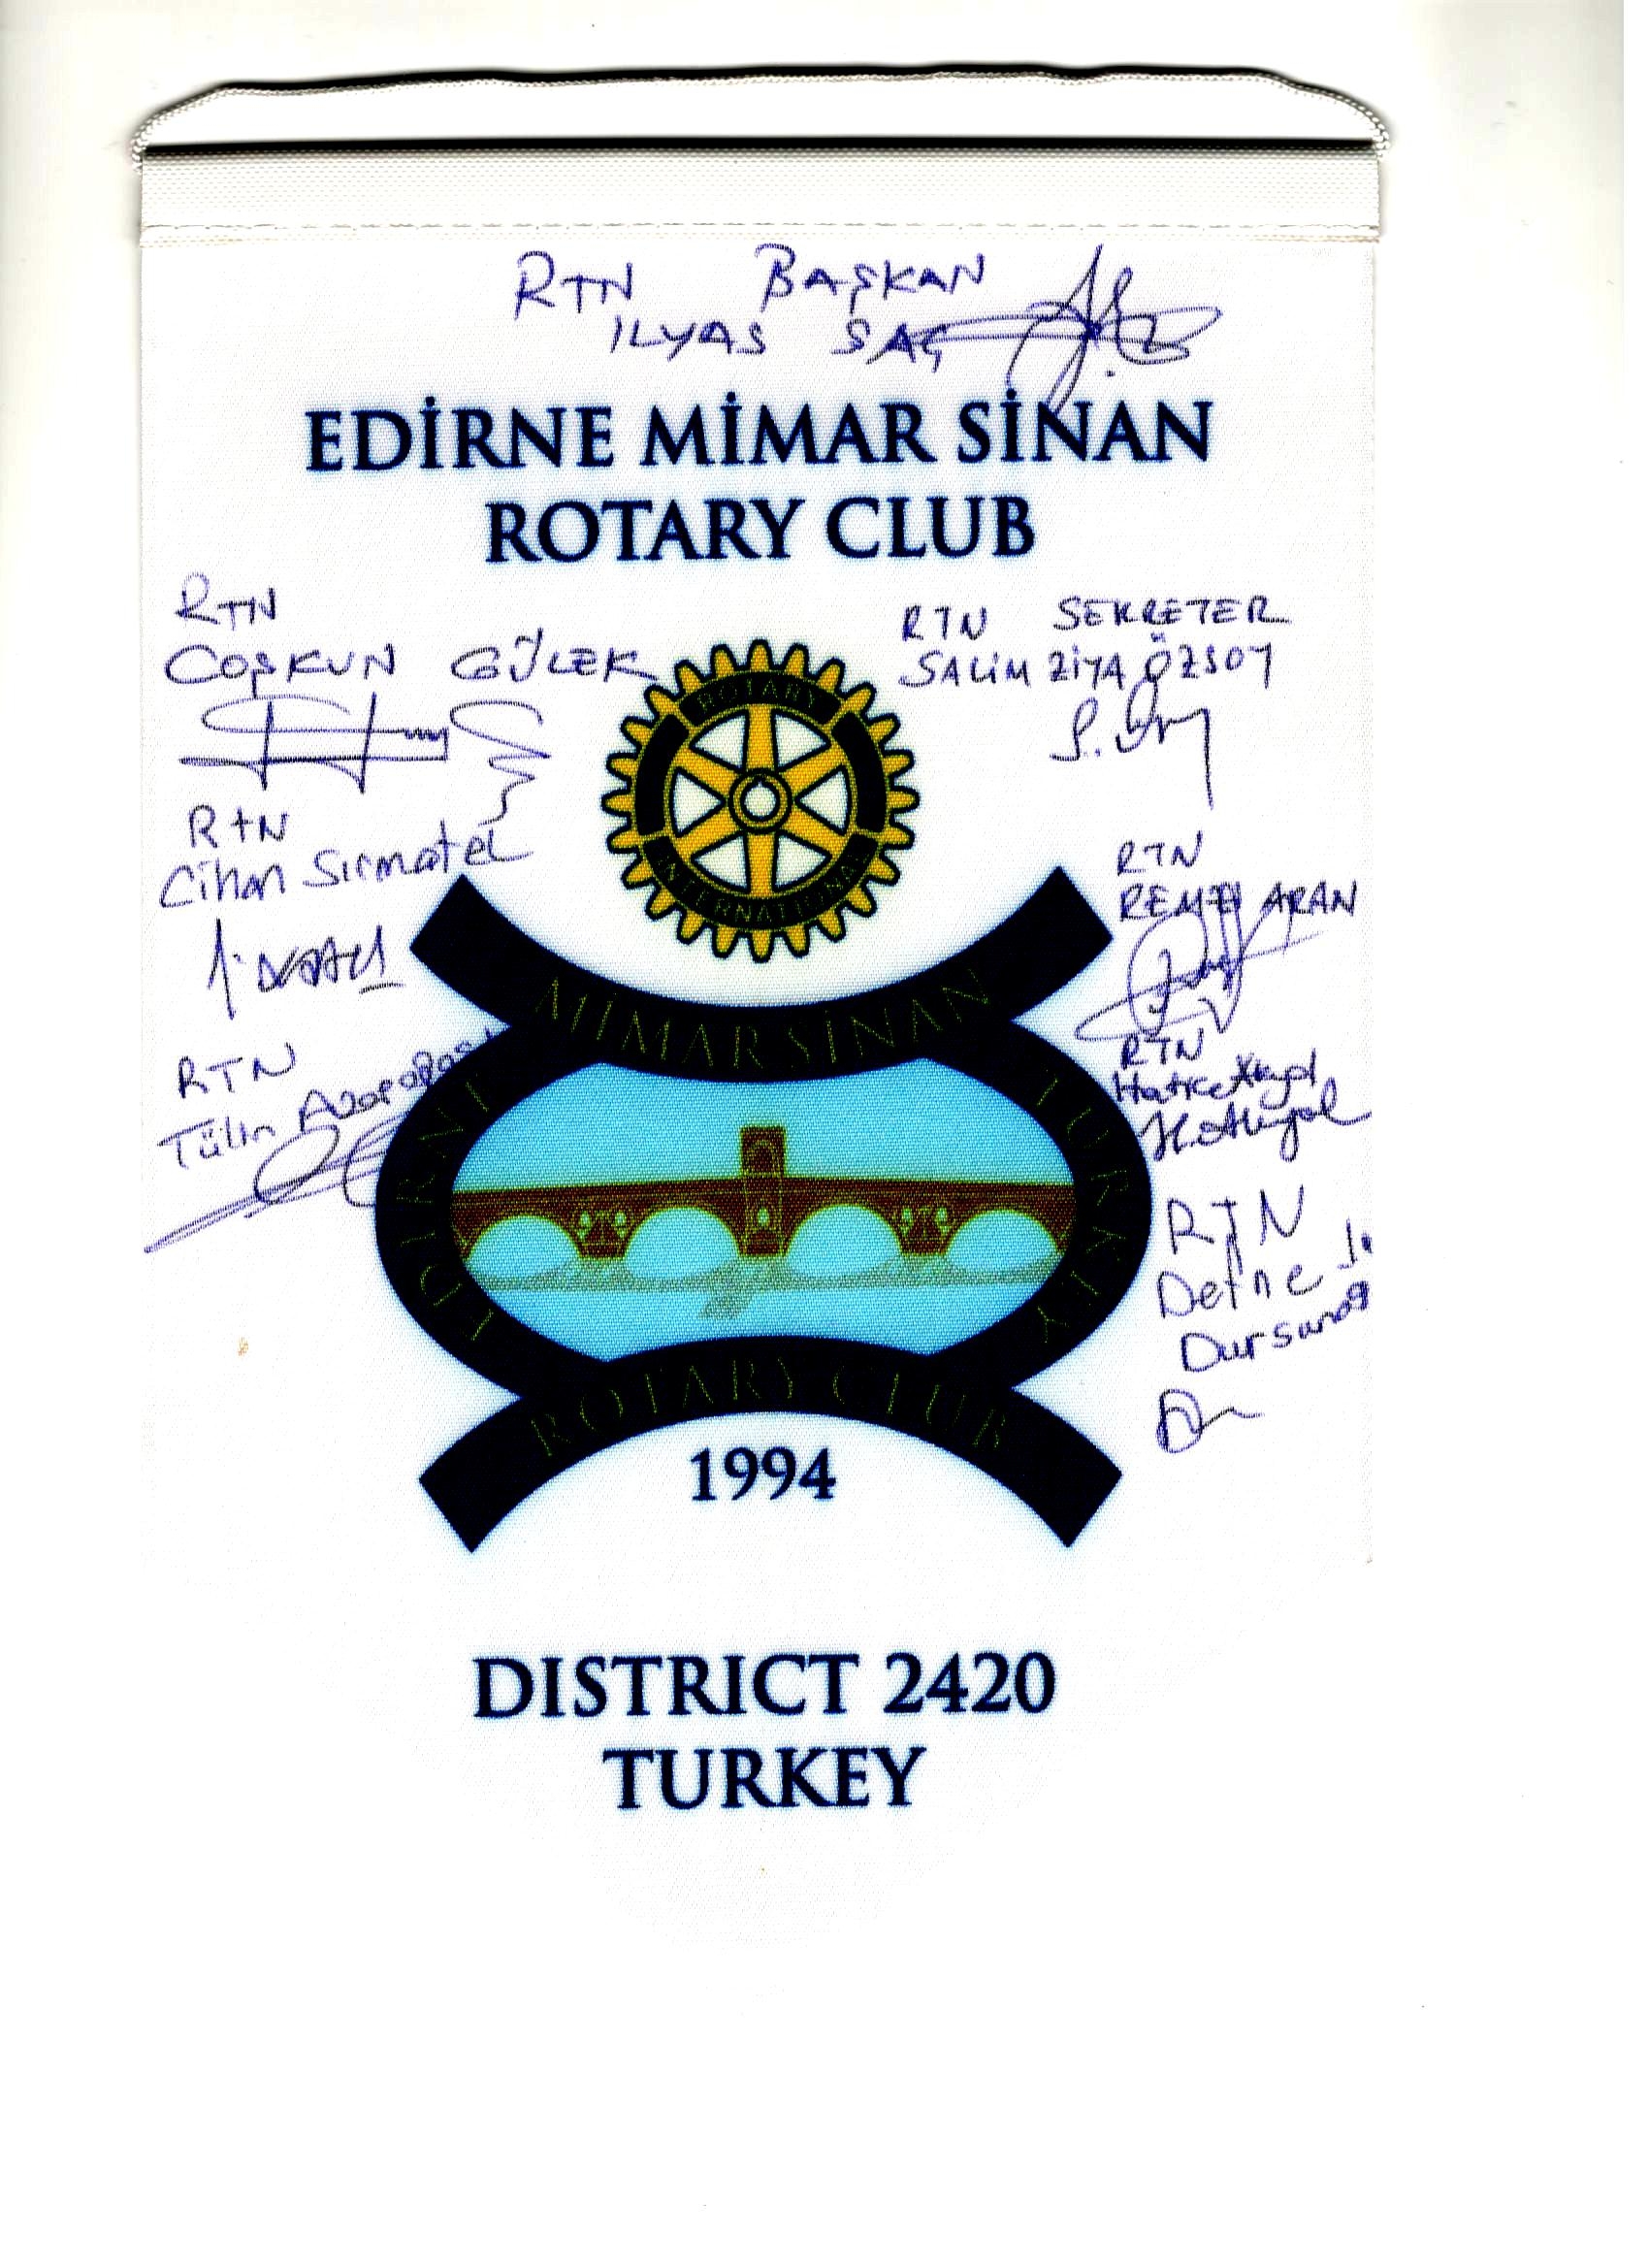 RTN BAŞKAN
ILYAS SAÇ
EDİRNE MİMAR SİNAN
ROTARY CLUB
RTN
COŞKUN GÜLEK
RTN SEKRETER
SALİM ZİYA ÖZSOY
ROTARY
INTERNATIONAL
RTN
Cihan Sırmatel
RTN
REMZİ ARAN
RTN
Tülin
RTN
Hatice Akyol
H. Akyol
RTN
Defne
MİMAR SİNAN
EDİRNE
TURKEY
ROTARY CLUB
1994
DISTRICT 2420
TURKEY